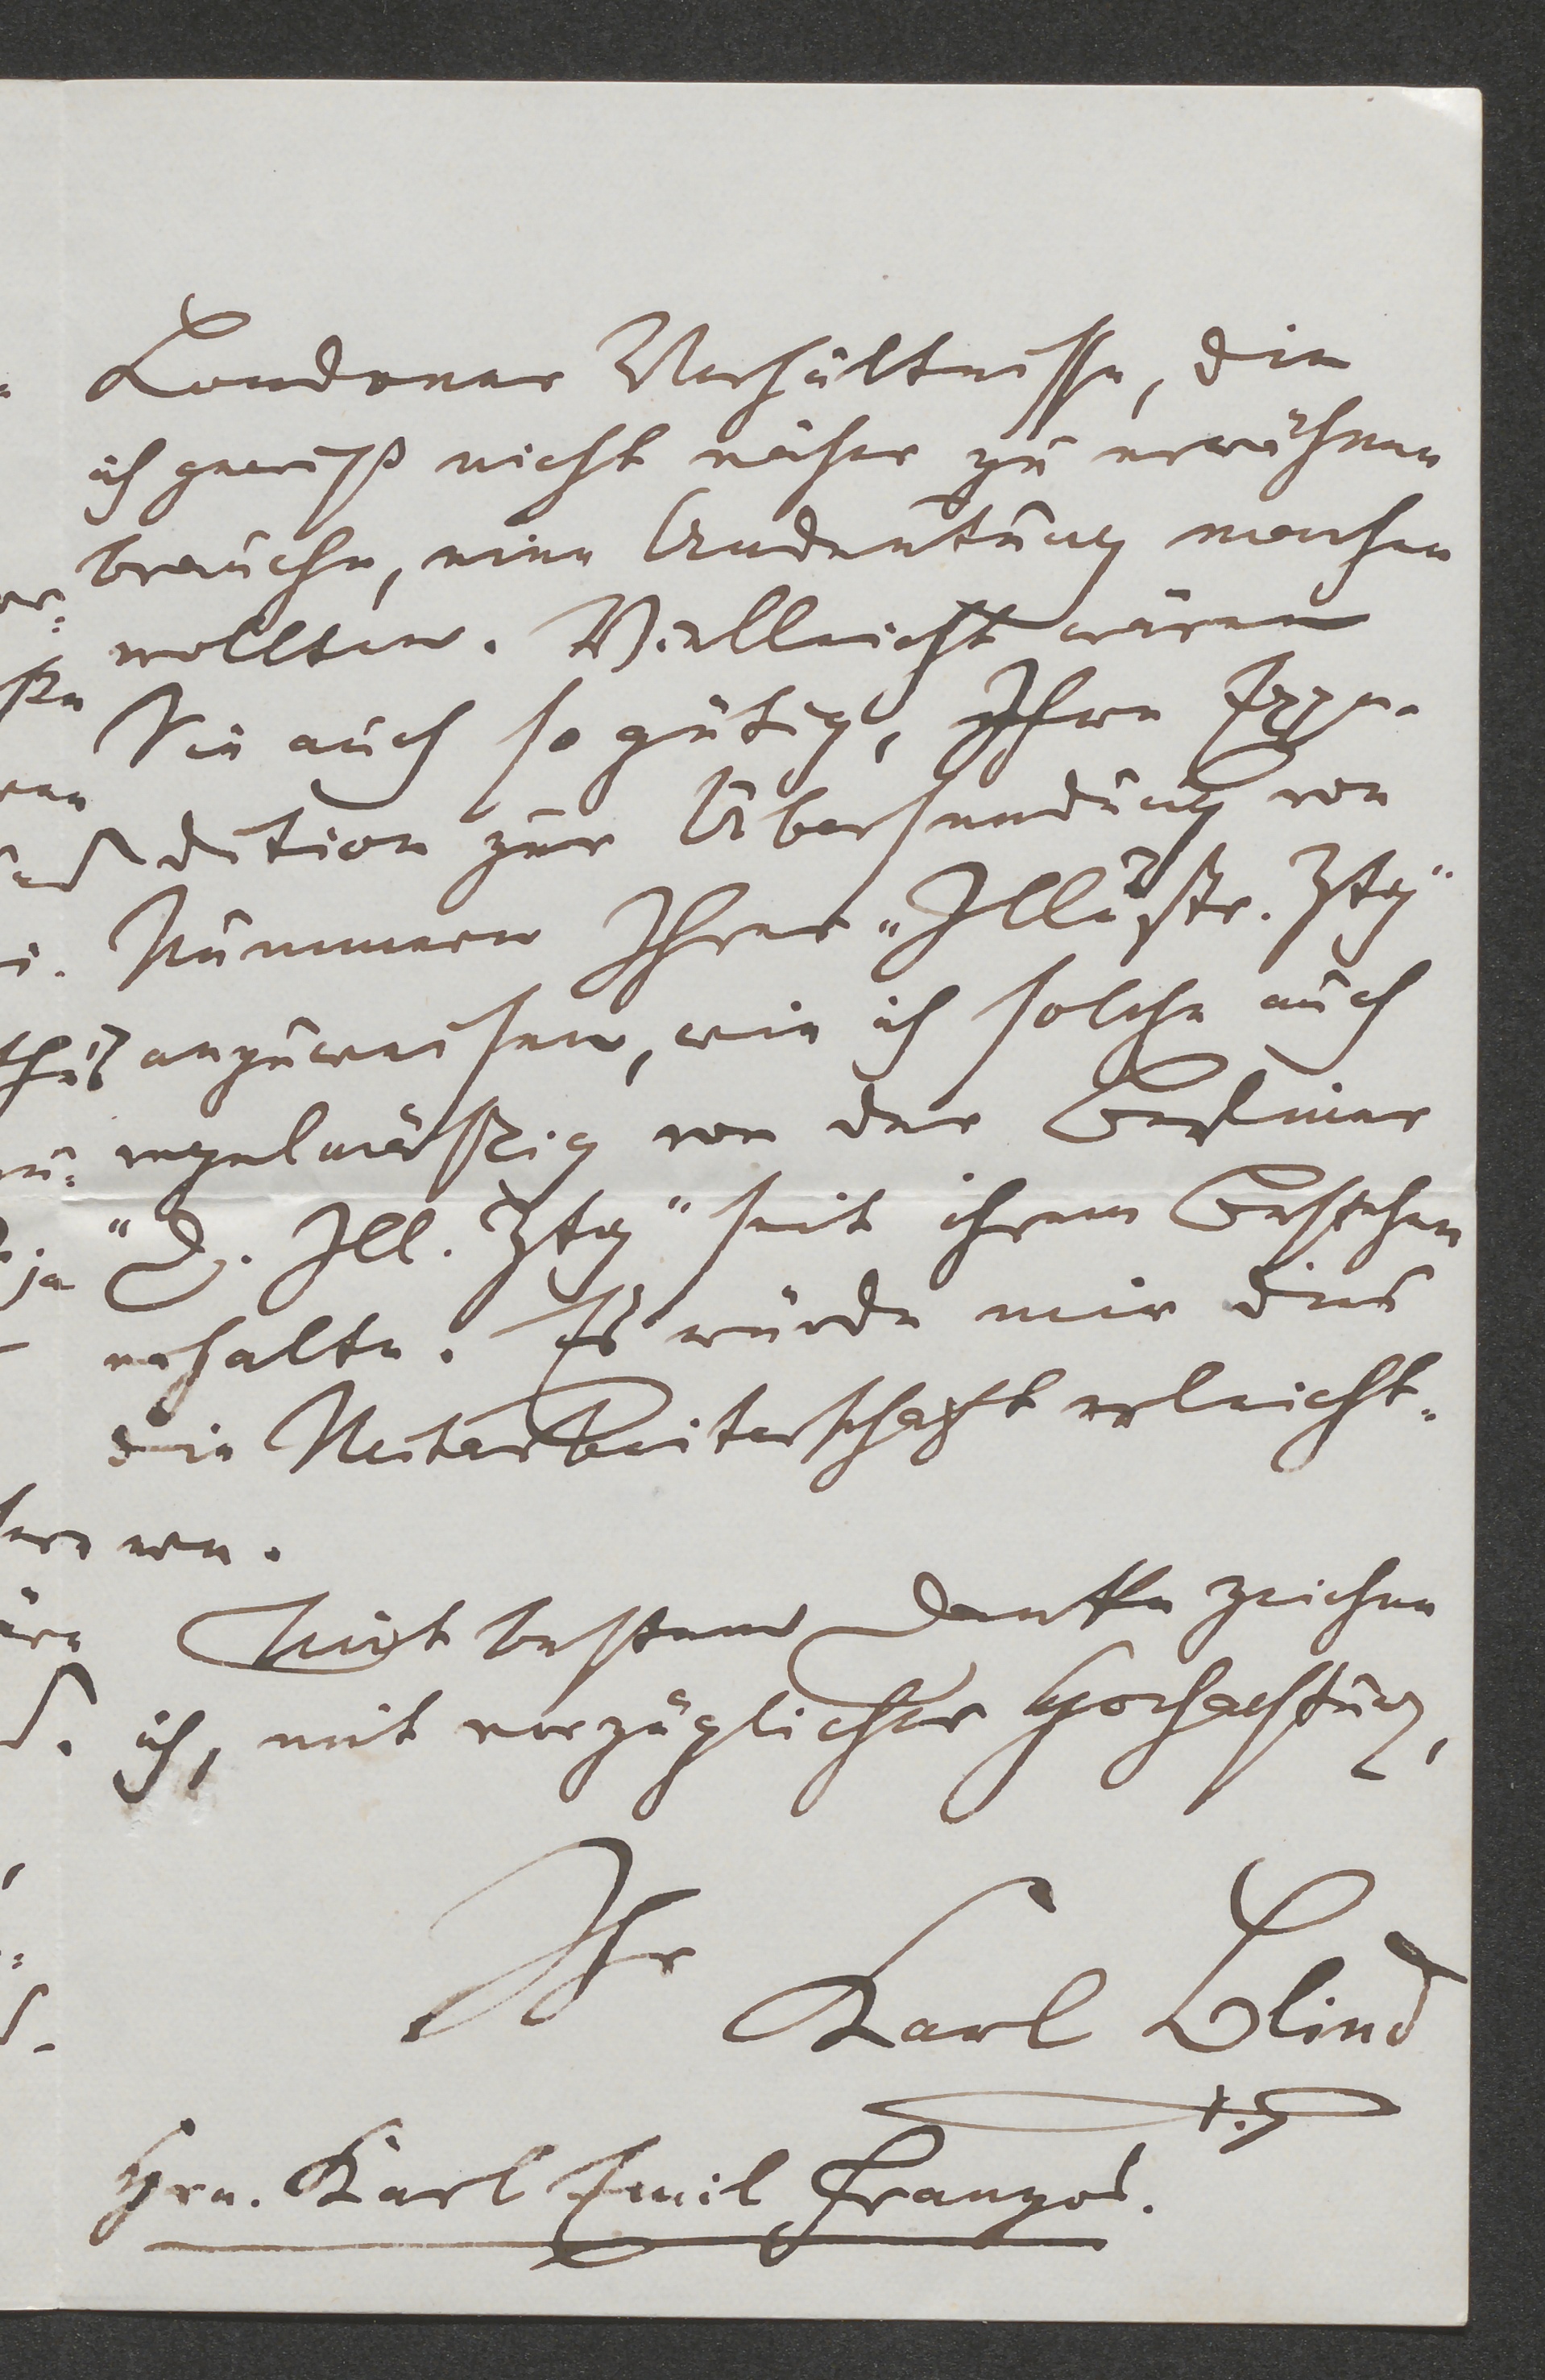 Londoner Verhältnisse, die
ich gewiß nicht näher zu erwähnen
brauche, eine Andeutung machen
wollten. Vielleicht wären
Sie auch so gütig, Ihre Expe-
dition zur Übersendung von
Nummern Ihrer „Illustr. Ztg"
anzuweisen, wie ich solche auch
regelmäßig von der Berliner
"D. Ill. Ztg" seit ihrem Bestehen
erhalte. Es würde mir dies
die Mitarbeiterschaft erleicht-
ern.
Mit bestem Danke zeichne
ich, mit vorzüglicher Hochachtung,
Ihr
Karl Blind
Hrn. Karl Emil Franzos.